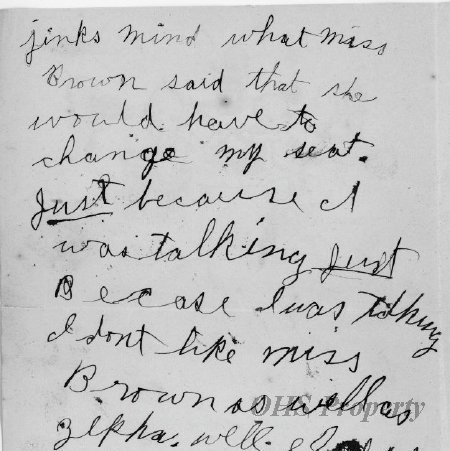 jinks mind what miss
Brown said that she
would have to
change my seat.
Just because I
was talking Just
Becase I was talking
I dont like miss
Brown as well as
zepha. well
OHS Property